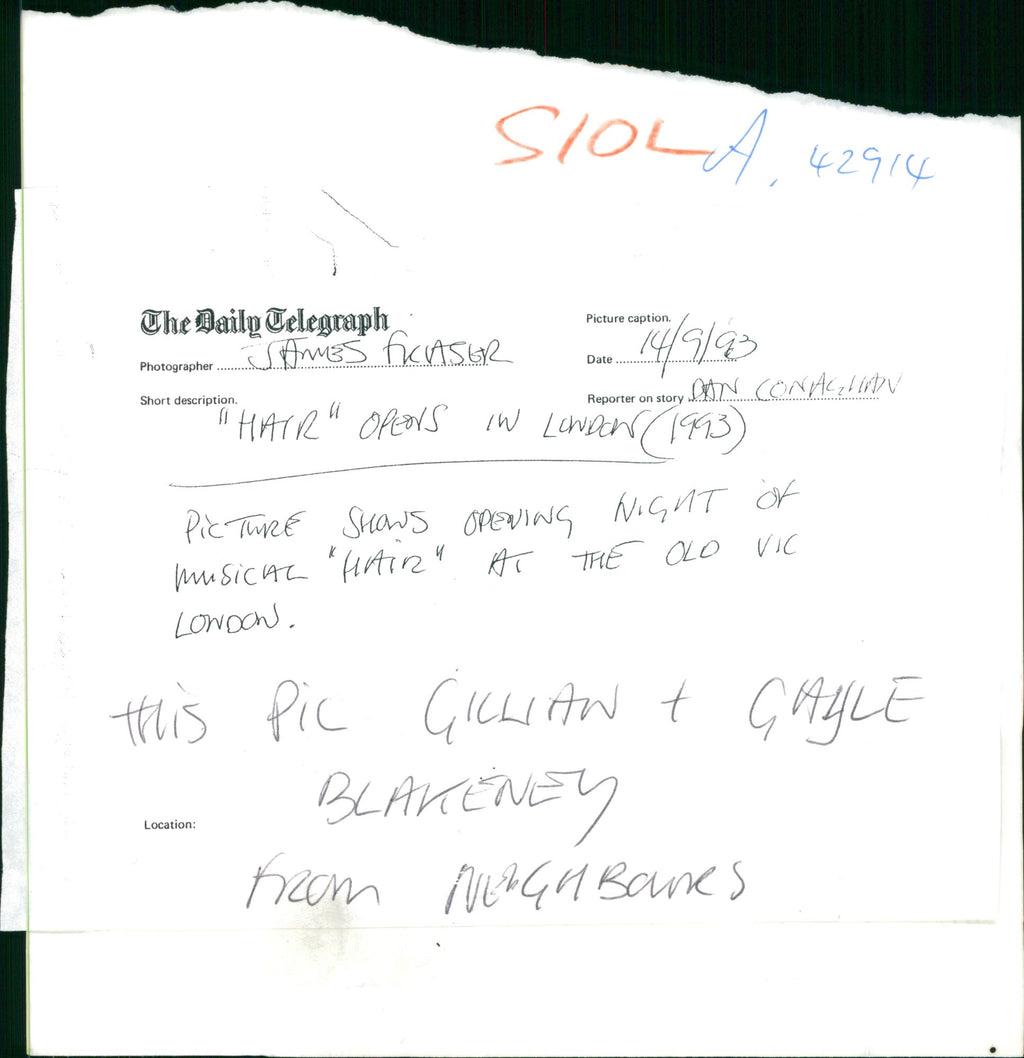 S10L A. 42914
The Daily Telegraph
Picture caption.
Photographer JAMES FRASER
Date 14/9/93
Short description.
Reporter on story DAN CONAGHAN
"HAIR" OPENS IN LONDON (1993)
PICTURE SHOWS OPENING NIGHT OF
MUSICAL "HAIR" AT THE OLD VIC
LONDON.
THIS PIC GILLIAN + GAYLE
BLAKENEY
Location:
FROM NEIGHBOURS